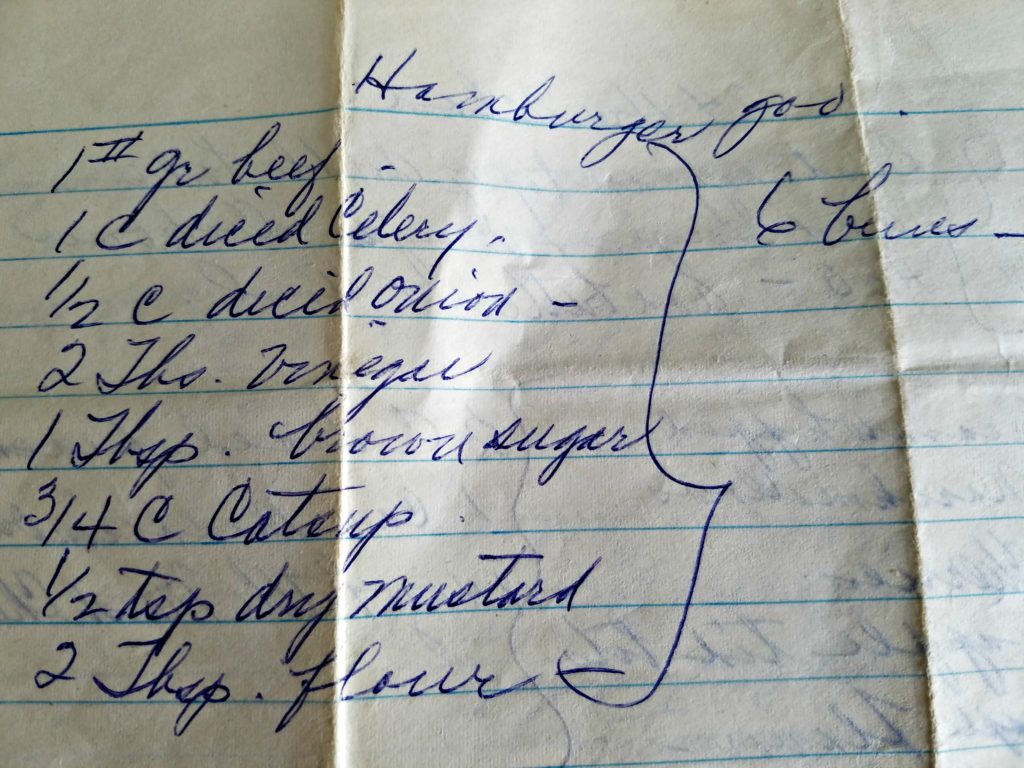 Hamburger goo.
1# gr beef -
1 C diced Celery.
6 buns -
1/2 C diced Onion -
2 Tbs. Vinegar
1 Tbsp. brown sugar
3/4 C Catsup.
1/2 tsp dry mustard
2 Tbsp. flour